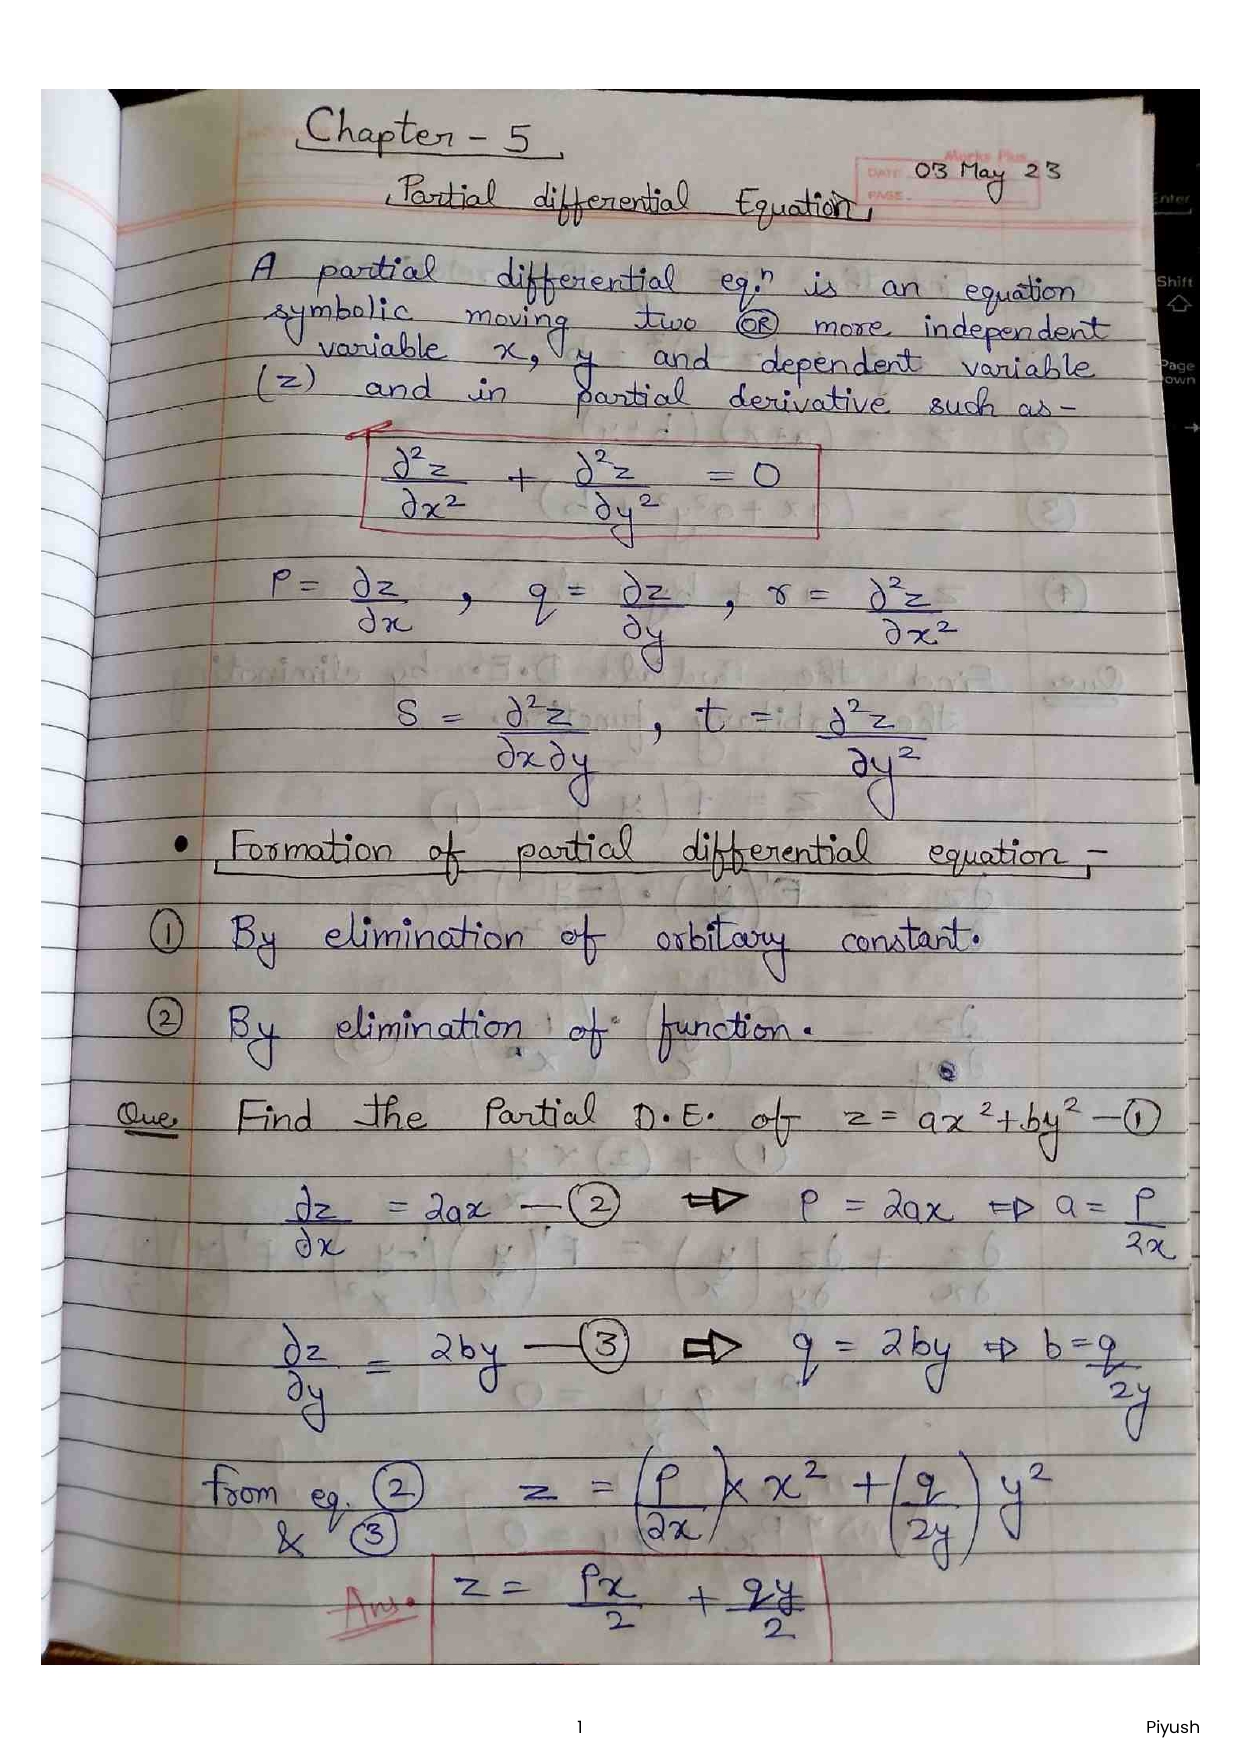 Chapter - 5
Marks Plus
DATE 03 May 23
PAGE
Partial differential Equation
A partial differential eq.ⁿ is an equation
symbolic moving two OR more independent
variable x, y and dependent variable
(z) and in partial derivative such as -
∂²z/∂x² + ∂²z/∂y² = 0
P = ∂z/∂x , q = ∂z/∂y , r = ∂²z/∂x²
S = ∂²z/∂x∂y , t = ∂²z/∂y²
• Formation of partial differential equation -
① By elimination of orbitary constant.
② By elimination of function.
Que. Find the Partial D.E. of z = ax² + by² - ①
∂z/∂x = 2ax - ② ⇒ P = 2ax ⇒ a = P/2x
∂z/∂y = 2by - ③ ⇒ q = 2by ⇒ b = q/2y
from eq. ② & ③ z = (P/2x) × x² + (q/2y) y²
Ans. z = Px/2 + qy/2
Enter
Shift
Page
own
1 Piyush